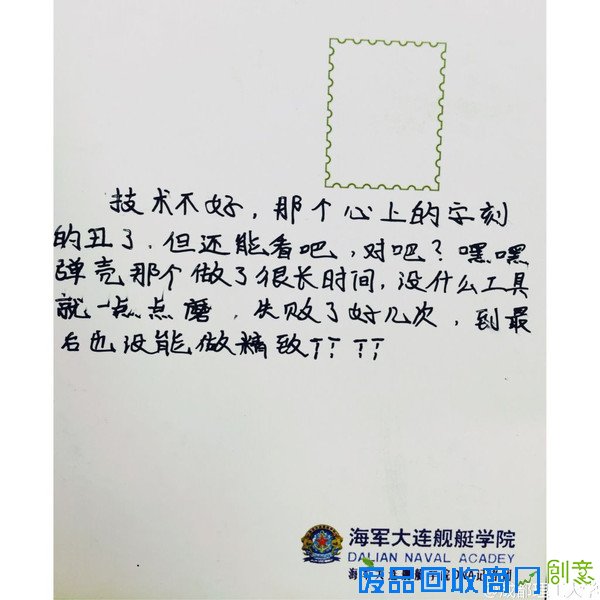 技术不好，那个心上的字刻
的丑了，但还能看吧，对吧？嘿嘿
弹壳那个做了很长时间，没什么工具
就一点点磨，失败了好几次，到最
后也没能做精致TT TT
海军大连舰艇学院
DALIAN NAVAL ACADEY
废品回收商网
創意